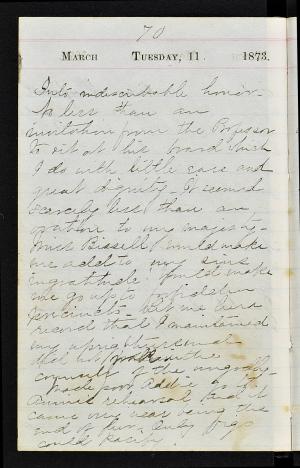 70
March Tuesday, 11 1873.
Into indescribable honor-
No less than an
invitation from the Professor
to sit at his board which
I do with little ease and
great dignity - It seemed
scarcely less than an
ovation to my majesty -
Miss Bissell would make
me add to my sins
ingratitude & would make
me go up to forbidden
precincts - but we here
record that I maintained
my uprightness and
did not walk in the
counsel of the ungodly -
poor Addie go to
rehearsal and it
came very near being the
end of her. Only figs
could pacify.